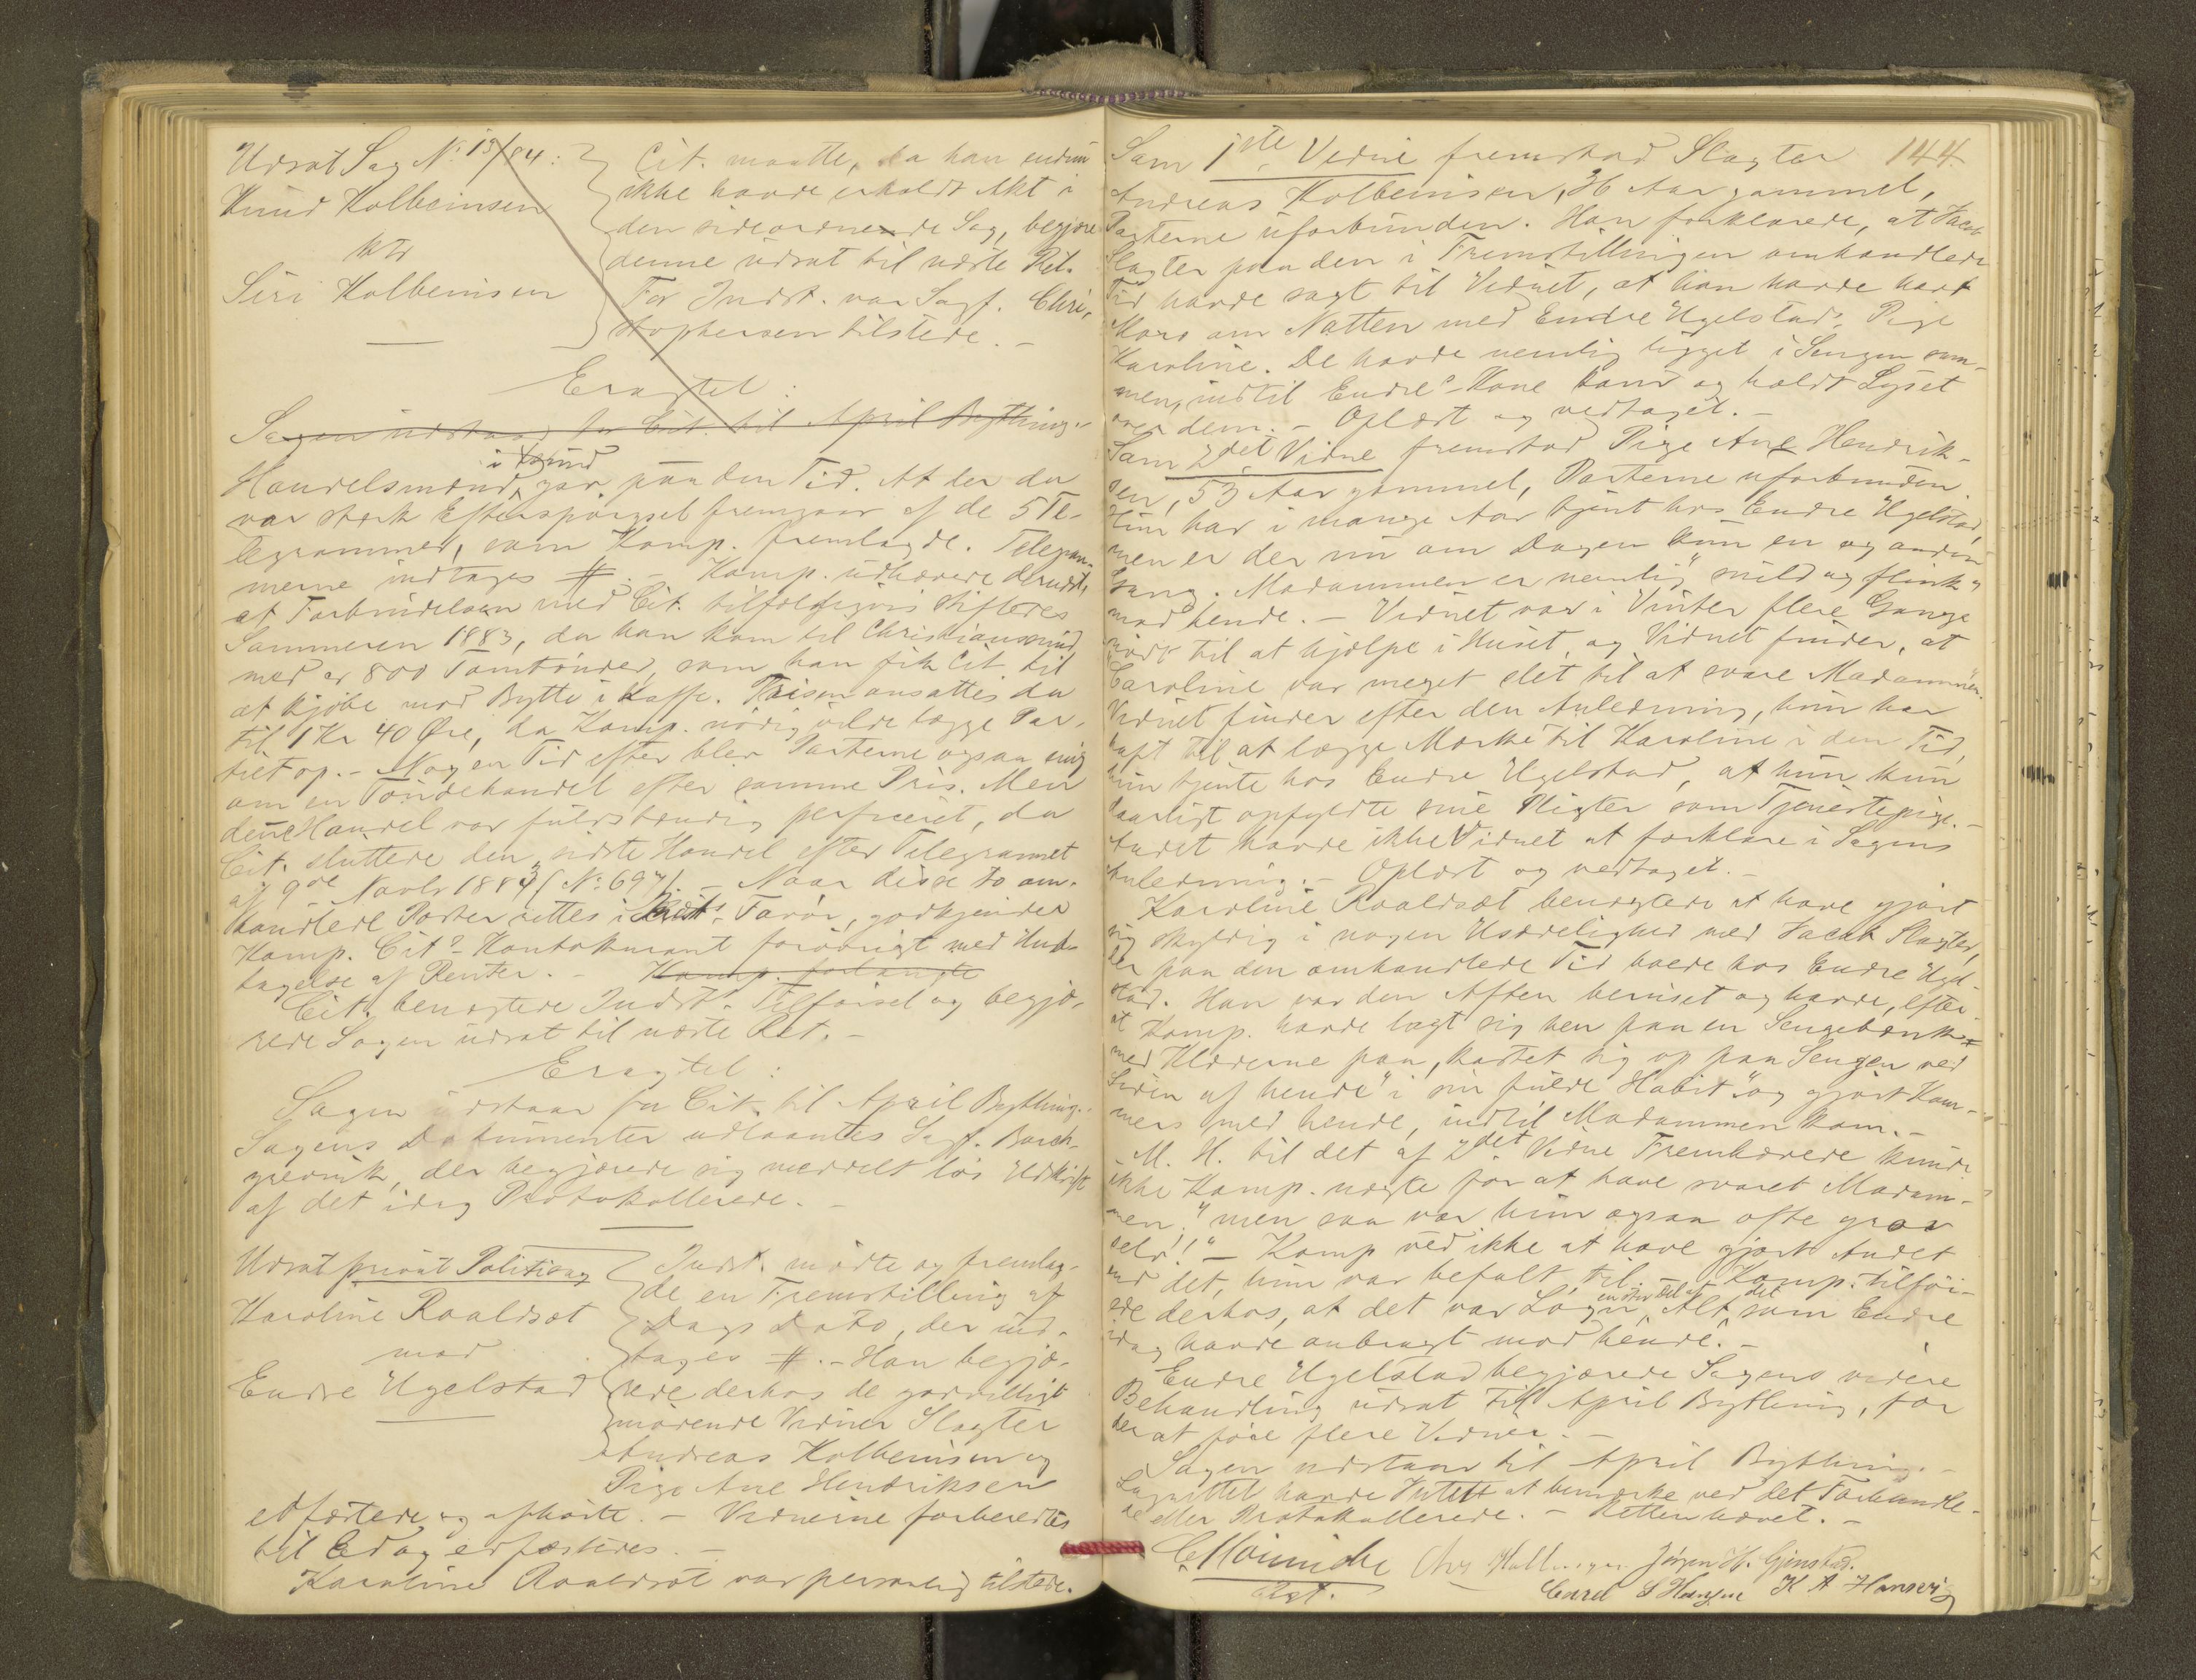 Udsat Sag No 13/84:
Knud Kolbeinsen
ktr
Siri Kolbeinsen
Cit. maatte, da han endnu
ikke havde erholdt Akt i
den sideordnede Sag, begjære
denne udsat til næste Ret.
For Indst. var Sagf. Chri-
stophersen tilstede. -
Eragtet:
Sagen udstaar for Cit. til April Bythings
i Xsund
Handelsmænd gav paa den Tid. At der da
var stærk Efterspørgsel fremgaar af de 5 Te-
legrammer, som Komp. fremlagde. Telegram-
merne indtages #. - Komp. udhævede derudst,
at Forbindelsen med Cit. tilfældigvis stiftedes
Sommeren 1883, da han kom til Christianssund
med ca 800 Tomtønder, som han fik Cit. til
at kjøbe mod Bytte i Kaffe. Prisen ansattes da
til 1 Kr 40 Øre, da Komp. nødig vilde lægge Par-
tiet op. - Nogen Tid efter blev Parterne ogsaa enig
om en Tøndehandel efter samme Pris. Men
denne Handel var fuldstændig perfieret, da
Cit. sluttede den sidste Handel efter Telegrammet
af 9de Novbr 1883 (No 697). - Naar disse to om-
handlede Poster rettes i Indst. Favør, godkjender
Komp. Cits Kontokurant forøvrigt med Und-
tagelse af Renter. - Komp. forlangte
Cit. benægtede Indsts Tilførsel og begjæ-
rede Sagen udsat til næste Ret. -
Eragtet:
Sagen udstaar for Cit. til April Bything.-
Sagens Dokumenter udlaantes Sagf. Borch-
grevink, der begjærede sig meddelt løs Udskrift
af det idag Protokollerede. -
Udsat privat Politisag
Karoline Roaldsæt
mod
Endre Ugelstad
Indst. mødte og fremlag-
de en Fremstilling af
Dags Dato, der ind-
tages #. - Han begjæ-
rede derhos de godvilligt
mødende Vidner Slagter
Andreas Kolbeinsen og
Pige Ane Hendriksen
edfæstede og afhørte. - Vidnerne forberedtes
til Ed og edfæstedes. -
Karoline Roaldsæt var personlig tilstede.
144.
Som 1ste Vidne fremstod Slagter
Andreas Kolbeinsen, 36 Aar gammel,
Parterne uforbunden. Han forklarede, at Jacob
Slagter paa den i Fremstillingen omhandlede
Tid havde sagt til Vidnet, at han havde havt
Moro om Natten med Endre Ugelstads Pige
Karoline. De havde nemlig ligget i Sengen sam-
men, indtil Endres Kone kom og holdt Lyset
over dem. - Oplæst og vedtaget. -
Som 2det Vidne fremstod Pige Ane Hendrik-
sen, 53 Aar gammel, Parterne uforbunden.
Hun har i mange Aar tjent hos Endre Ugelstad,
men er der nu om Dagen kun en og anden
Gang. Madammen er nemlig "snild og flink"
mod hende. - Vidnet var i Vinter flere Gange
nødt til at hjælpe i Huset, og Vidnet finder, at
"Caroline var meget slet til at svare Madammen."
Vidnet finder efter den Anledning, hun har
haft til at lægge Mærke til Karoline i den Tid,
hun tjente hos Endre Ugelstad, at hun kun
daarligt opfyldte sine Pligter som Tjenestepige. -
Andet havde ikke Vidnet at forklare i Sagens
Anledning. - Oplæst og vedtaget. -
Karoline Roaldsæt benægtede at have gjort
sig skyldig i nogen Usædelighed med Jacob Slagter,
der paa den omhandlede Tid boede hos Endre Ugel-
stad. Han var den Aften beruset og havde, efter-
at Komp. havde lagt sig hen paa en Sengebænk
med Klæderne paa, kastet sig op paa Sengen ved
Siden af hende "i sin fulde Habit" og gjort Kom-
mers med hende, indtil Madammen kom. -
M. H. til det af 2det Vidne Fremhævede kunde
ikke Komp. nægte for at have svaret Madam-
men, "men saa var hun ogsaa ofte grov
selv!" - Komp ved ikke at have gjort Andet
end det, hun var befalt til. Komp. tilføi-
en stor Del af det
ede derhos, at det var Løgn, Alt, som Endre
idag havde anbragt mod hende. -
Endre Ugelstad begjærede Sagens videre
Behandling udsat til April Bything, for
der at føre flere Vidner. -
Sagen udstaar til April Bything. -
Lagrettet havde Intet at bemærke ved det Forhandle-
de eller Protokollerede. - Retten hævet. -
Jørgen H. Gjenstad.
Carel S Hansen K A Hansen